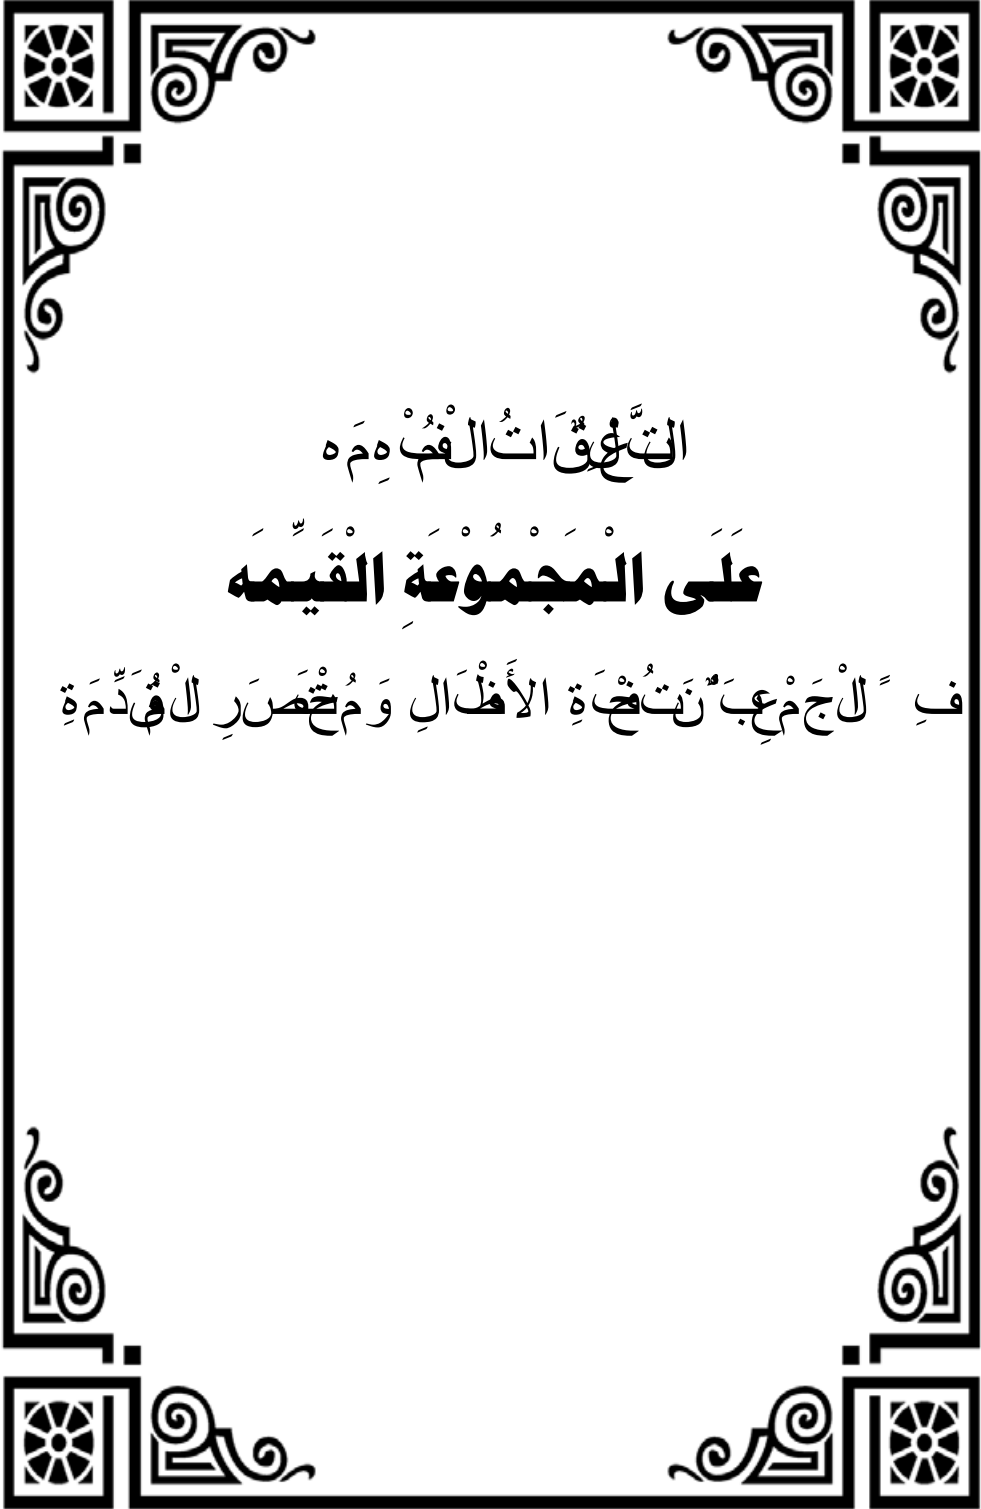 التَّعْلِيْقَاتُ الْمُفْهِمَه
عَلَى الْمَجْمُوْعَةِ الْقَيِّمَه
فِي الْجَمْعِ بَيْنَ تُحْفَةِ الأَطْفَالِ وَ مُخْتَصَرِ الْمُقَدِّمَةِ